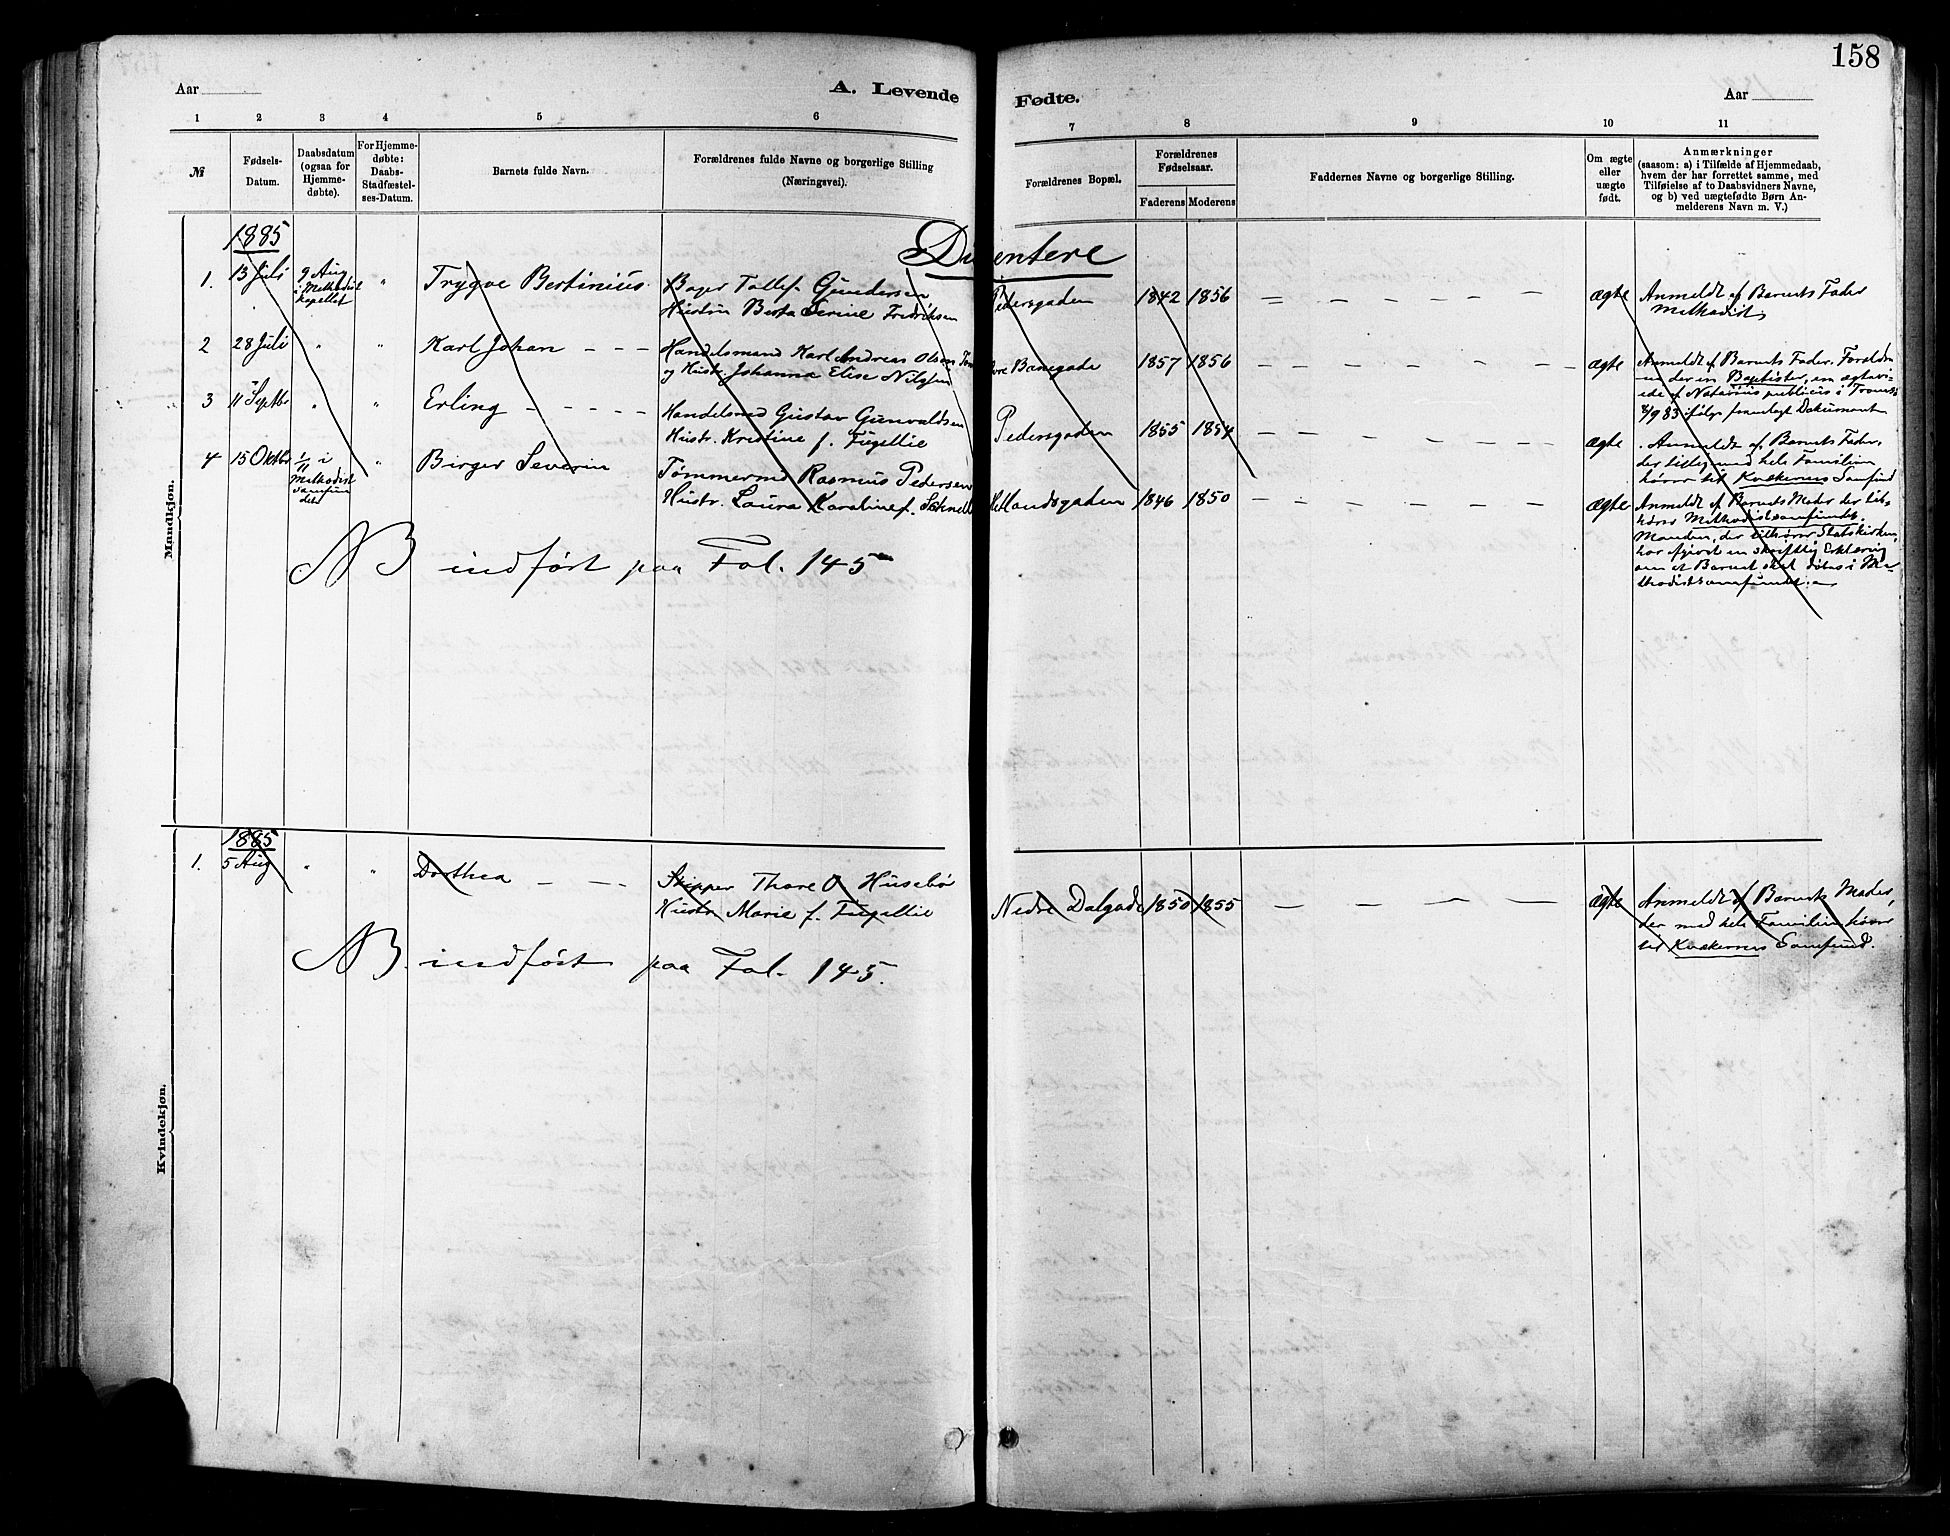 158
Aar
A. Levende
Fødte.
Aar
1 2 3 4 5 6 7 8 9 10 11
№
Fødsels-
Datum.
Daabsdatum
(ogsaa for
Hjemme-
døbte).
For Hjemme-
døbte:
Daabs-
Stadfæstel-
ses-Datum.
Barnets fulde Navn.
Forældrenes fulde Navne og borgerlige Stilling
(Næringsvei).
Forældrenes Bopæl.
Forældrenes
Fødselsaar.
Faderens Moderens
Faddernes Navne og borgerlige Stilling.
Om ægte
eller
uægte
født.
Anmærkninger
(saasom: a) i Tilfælde af Hjemmedaab,
hvem der har forrettet samme, med
Tilføielse af to Daabsvidners Navne,
og b) ved uægtefødte Børn An-
melderens Navn m. V.)
Mandkjøn.
1885
1. 13 Juli
9 Aug.
i Methodist
kapellet
" Trygve Bertinius
Bager Tollef Gundersen
Hustru Berta Serine Fredriksen
Pedersgaden 1842 1856 = – – – – – ægte
Anmeldt af Barnets Fader
Methodist
2 28 Juli " " Karl Johan – – –
Handelsmand Karl Andreas Olsen
og Hustr. Johanna Elise Nilsen
Banegade 1857 1856 – – – – – – ægte
Anmeldt af Barnets Fader. Foreldre-
ne der ere Baptister, ere egtevi-
ede af Notarius publicus i Tromsø
83 ifølge fremlagt Dokument
3 11 Septbr " " Erling – – – – –
Handelsmd Gustav Gunvaldsen
Hustr. Kristine f. Fugellie
Pedersgaden 1855 1854 – – – – – – ægte
Anmeldt af Barnets Fader,
der tillig. med hele Familien
hører til Kvækernes Samfund
4 15 Oktbr
1/11 i
Methodist
samfun
det
" Birger Severin
Tømmermd Rasmus Pedersen
Hustr. Laura Karoline f.
Hetlandsgaden 1846 1850 – – – – – – ægte
Anmeldt af Barnets Moder der til-
hører Methodistsamfundet.
Manden, der tilhører Statskirken,
har afgivet en skriftlig Erklæring
om at Barnet skal døbes i Me-
thodistsamfundet. –
NB indført paa Fol. 145
Kvindekjøn.
1885
1. 5 Aug " " Dorthea – – –
Skipper Thore O Husebø
Hustr Marie f. Fugellie
Nedre Dalgade 1850 1855 – – – – – ægte
Anmeldt af Barnets Moder,
der med hele Familien hører
til Kvækernes Samfund.
NB. indført paa Fol. 145.